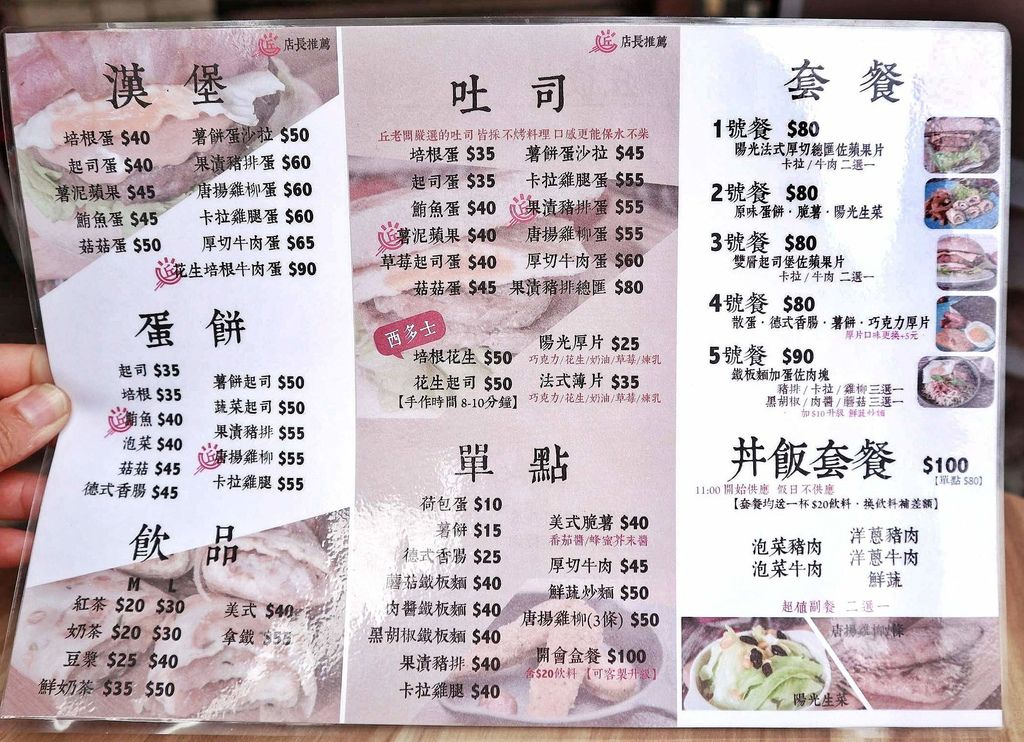 店長推薦
漢堡
培根蛋 $40
起司蛋 $40
薯泥蘋果 $45
鮪魚蛋 $45
菇菇蛋 $50
薯餅蛋沙拉 $50
果漬豬排蛋 $60
唐揚雞柳蛋 $60
卡拉雞腿蛋 $60
厚切牛肉蛋 $65
花生培根牛肉蛋 $90
蛋餅
起司 $35
培根 $35
鮪魚 $40
泡菜 $40
菇菇 $45
德式香腸 $45
薯餅起司 $50
蔬菜起司 $50
果漬豬排 $55
唐揚雞柳 $55
卡拉雞腿 $55
飲品
M L
紅茶 $20 $30
奶茶 $20 $30
豆漿 $25 $40
鮮奶茶 $35 $50
美式 $40
拿鐵 $55
店長推薦
吐司
丘老闆嚴選的吐司皆採不烤料理 口感更能保水不柴
培根蛋 $35
起司蛋 $35
鮪魚蛋 $40
薯泥蘋果 $40
草莓起司蛋 $40
菇菇蛋 $45
薯餅蛋沙拉 $45
卡拉雞腿蛋 $55
果漬豬排蛋 $55
唐揚雞柳蛋 $55
厚切牛肉蛋 $60
果漬豬排總匯 $80
西多士
培根花生 $50
花生起司 $50
【手作時間 8-10分鐘】
陽光厚片 $25
巧克力/花生/奶油/草莓/煉乳
法式薄片 $35
巧克力/花生/奶油/草莓/煉乳
單點
荷包蛋 $10
薯餅 $15
德式香腸 $25
蘑菇鐵板麵 $40
肉醬鐵板麵 $40
黑胡椒鐵板麵 $40
果漬豬排 $40
卡拉雞腿 $40
美式脆薯 $40
番茄醬/蜂蜜芥末醬
厚切牛肉 $45
鮮蔬炒麵 $50
唐揚雞柳(3條) $50
開會盒餐 $100
含$20飲料 【可客製升級】
套餐
1號餐 $80
陽光法式厚切總匯佐蘋果片
卡拉/牛肉 二選一
2號餐 $80
原味蛋餅·脆薯·陽光生菜
3號餐 $80
雙層起司堡佐蘋果片
卡拉/牛肉 二選一
4號餐 $80
散蛋·德式香腸·薯餅·巧克力厚片
厚片口味更換+5元
5號餐 $90
鐵板麵加蛋佐肉塊
豬排/卡拉/雞柳 三選一
黑胡椒/肉醬/蘑菇 三選一
加$10升級 鮮蔬炒麵
丼飯套餐 $100
【單點 $80】
11:00 開始供應 假日不供應
【套餐均送一杯$20飲料·換飲料補差額】
泡菜豬肉
泡菜牛肉
洋蔥豬肉
洋蔥牛肉
鮮蔬
超值副餐 二選一
陽光生菜